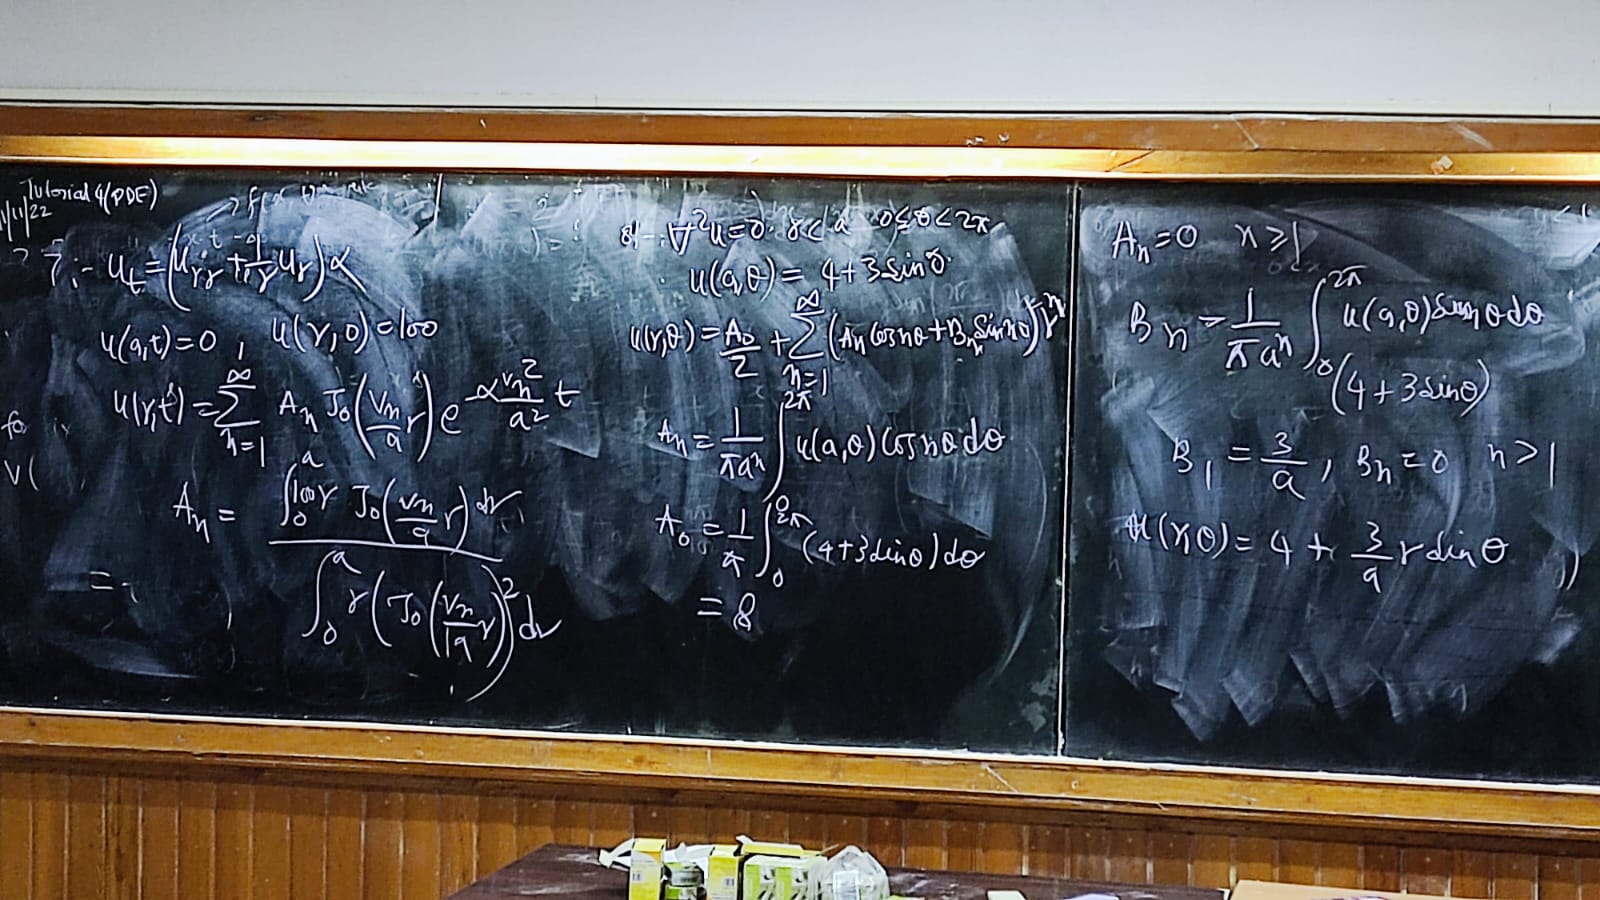 Tutorial 4(PDE)
1/11/22
7:- u_t = (u_rr + 1/r u_r) α
u(a,t)=0, u(r,0)=100
u(r,t) = ∑_{n=1}^{∞} A_n J_0(v_n/a r) e^{-α v_n^2/a^2 t}
A_n = ∫_0^a 100 r J_0(v_n/a r) dr / ∫_0^a r (J_0(v_n/a r))^2 dr
8:- ∇^2 u=0. r<a 0≤θ<2π
u(a,θ) = 4+3 sinθ.
u(r,θ) = A_0/2 + ∑_{n=1}^{∞} (A_n cos nθ + B_n sin nθ) r^n
A_n = 1/(πa^n) ∫_0^{2π} u(a,θ) cos nθ dθ
A_0 = 1/π ∫_0^{2π} (4+3 sinθ) dθ
= 8
A_n=0 n≥1
B_n = 1/(πa^n) ∫_0^{2π} u(a,θ) sin nθ dθ
(4+3 sinθ)
B_1 = 3/a, B_n=0 n>1
u(r,θ) = 4 + 3/a r sinθ